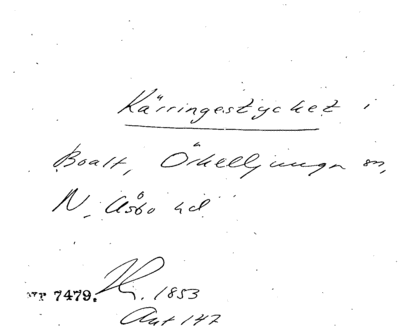 Kärringestycket i
Boalt, Örkelljunga sn,
N. Åsbo hd
nr 7479. 1853
Ant 147